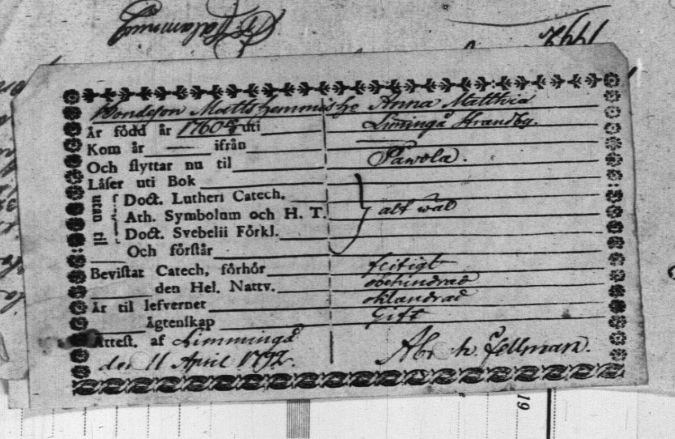 1792
Är född år 1760 uti Limingå Strandby.
Kom år — ifrån
Och flyttar nu til Pawola.
Låser uti Bok
utan til
Doct. Lutheri Catech.
Ath. Symbolum och H. T. alt wäl
Doct. Svebelii Förkl.
Och förstår
Bevistat Catech. förhör flitigt
den Hel. Nattv. obehindrad
Är til lefvernet oklandrad
ägtenskap Gift
Attest. af Limmingå
den 11 April 1792. Abr. Fellman.
19